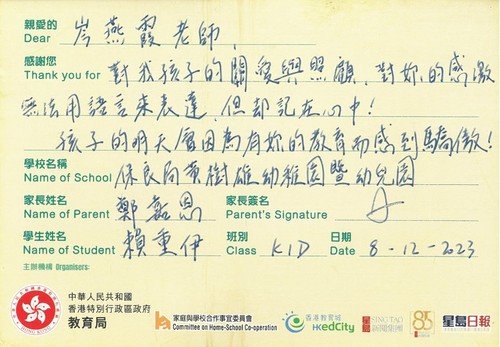 親愛的
Dear 岑燕霞老師,
感謝您
Thank you for 對我孩子的關愛與照顧, 對妳的感激
無法用語言來表達, 但却記在心中!
孩子的明天會因為有妳的教育而感到驕傲!
學校名稱
Name of School 保良局黃樹雄幼稚園暨幼兒園
家長姓名 家長簽名
Name of Parent 鄭嘉恩 Parent's Signature
學生姓名 班別 日期
Name of Student 賴重伊 Class K1D Date 8-12-2023
主辦機構 Organisers:
中華人民共和國
香港特別行政區政府
教育局
家庭與學校合作事宜委員會
Committee on Home-School Co-operation
香港教育城
HKedCity
SING TAO
新聞集團
85
星島日報